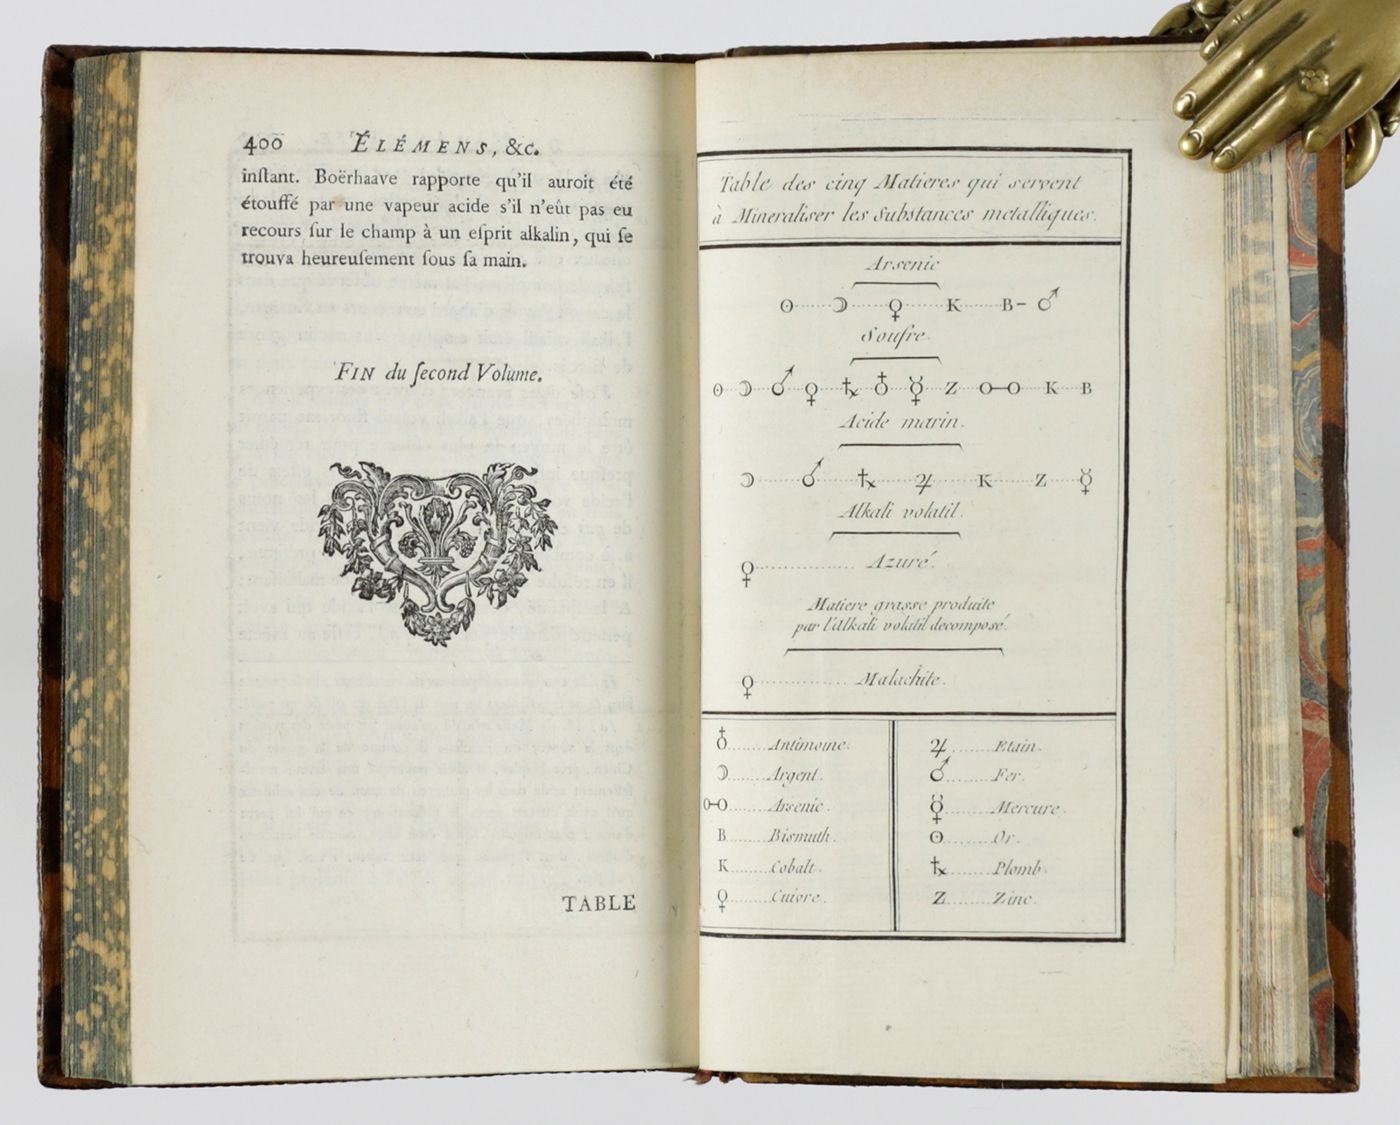 400 ÉLÉMENS, &c.
inſtant. Boërhaave rapporte qu'il auroit été
étouffé par une vapeur acide s'il n'eût pas eu
recours ſur le champ à un eſprit alkalin, qui ſe
trouva heureuſement ſous ſa main.
FIN du ſecond Volume.
TABLE
Table des cinq Matieres qui servent
à Mineraliser les Substances metalliques.
Arsenic
☉ ☽ ♀ K B- ♂
Soufre.
☉ ☽ ♂ ♀ ♄ ♁ ☿ Z O-O K B
Acide marin.
☽ ♂ ♄ ♃ K Z ☿
Alkali volatil.
♀ Azuré.
Matiere grasse produite
par l'Alkali volatil decomposé.
♀ Malachite.
♁ Antimoine.
☽ Argent.
O-O Arsenic.
B Bismuth.
K Cobalt.
♀ Cuivre.
♃ Etain.
♂ Fer.
☿ Mercure.
☉ Or.
♄ Plomb.
Z Zinc.